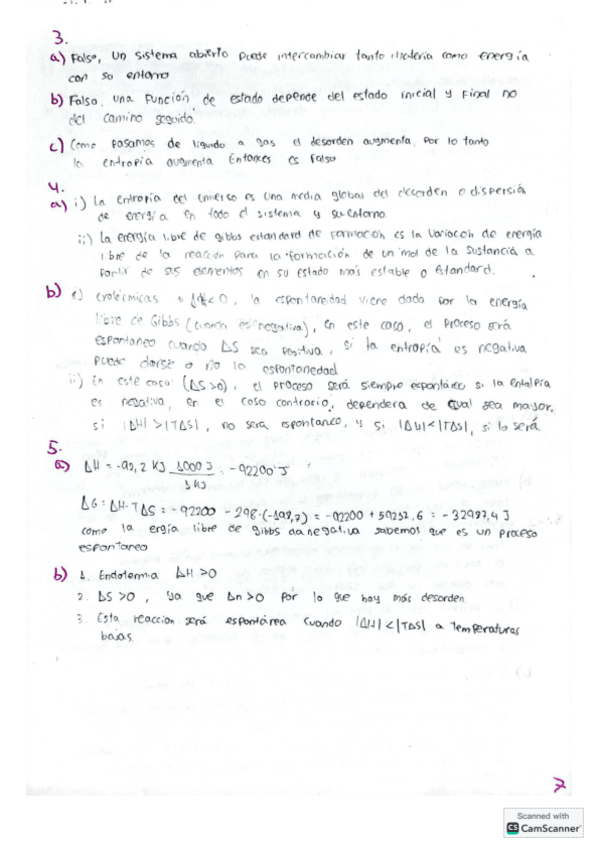 3.
a) Falso, un sistema abierto puede intercambiar tanto materia como energía
con su entorno
b) Falso, una función de estado depende del estado inicial y final no
del camino seguido.
c) Como pasamos de liquido a gas el desorden augmenta, por lo tanto
la entropia augmenta Entonces es falso
4.
a) i) La entropia del universo es una media global del desorden o dispersió
de energía en todo el sistema y su entorno.
ii) La energía libre de gibbs estandard de formación es la variación de energía
libre de la reacción para la formación de un mol de la sustancia a
partir de sus elementos en su estado más estable o Estandard.
b) i) exotérmicas ΔH<0, la espontaneidad viene dada por la energía
libre de Gibbs (cuando es negativa), en este caso, el proceso será
espontaneo cuando ΔS sea positiva, si la entropía es negativa
puede darse o no la espontaneidad
ii) En este caso (ΔS>0), el proceso será siempre espontáneo si la entalpia
es negativa, en el caso contrario, dependera de cual sea mayor.
si |ΔH|>|TΔS|, no sera espontaneo, y si |ΔH|<|TΔS|, si lo será
5.
a) ΔH = -92,2 KJ 1000 J = -92200 J
1 KJ
ΔG = ΔH-TΔS = -92200 - 298·(-198,7) = -92200 + 59212,6 = -32987,4 J
como la ergía libre de gibbs da negativa sabemos que es un proceso
espontaneo
b) 1. Endotermia ΔH>0
2. ΔS>0, ya que Δn>0 por lo que hay más desorden.
3. Esta reaccion será espontárea cuando |ΔH|<|TΔS| a temperaturas
bajas.
7
Scanned with
CS CamScanner